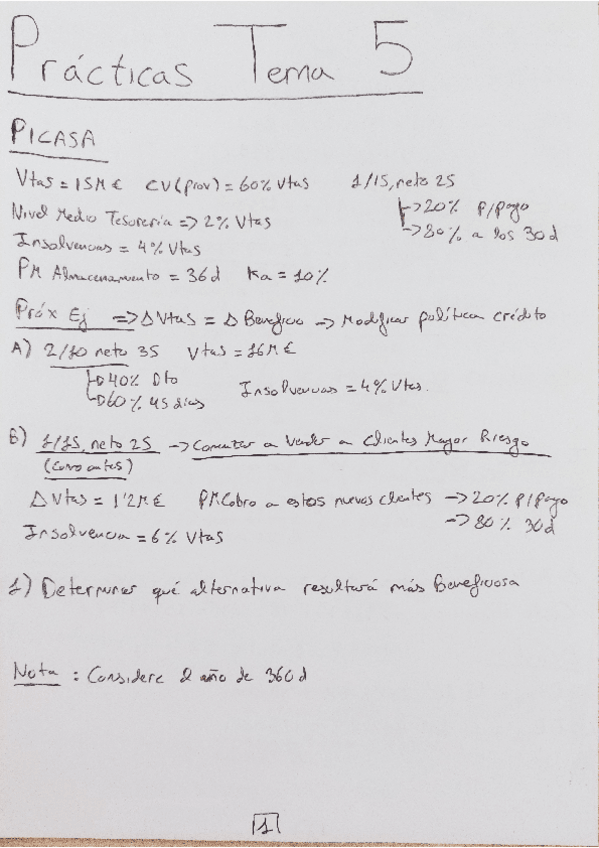 Prácticas Tema 5
PICASA
Vtas = 15M € CV(prov) = 60% Vtas 1/15, neto 25
Nivel Medio Tesorería => 2% Vtas -> 20% P/Pago
Insolvencias = 4% Vtas -> 80% a los 30d
PM Almacenamiento = 36d Ka = 10%
Próx Ej => Δ Vtas = Δ Beneficio -> Modificar política crédito
A) 2/10 neto 35 Vtas = 16M€
-> 40% Dto Insolvencias = 4% Vtas.
-> 60% 45 días
B) 1/15, neto 25 -> Comenzar a Vender a Clientes Mayor Riesgo
(como antes)
Δ Vtas = 1'2M€ PMCobro a estos nuevos clientes -> 20% P/Pago
Insolvencia = 6% Vtas -> 80% 30d
1) Determinar qué alternativa resultará más Beneficiosa
Nota : Considere el año de 360d
1